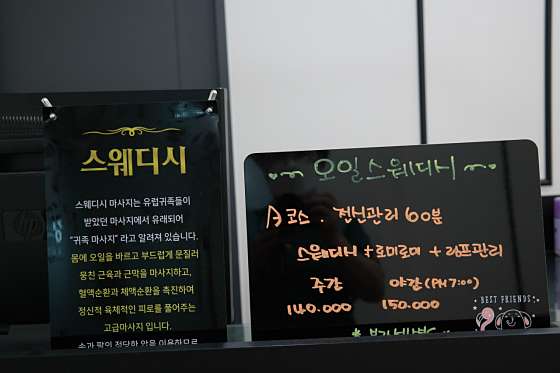 스웨디시
스웨디시 마사지는 유럽귀족들이
받았던 마사지에서 유래되어
"귀족 마사지" 라고 알려져 있습니다.
몸에 오일을 바르고 부드럽게 문질러
뭉친 근육과 근막을 마사지하고,
혈액순환과 체액순환을 촉진하여
정신적 육체적인 피로를 풀어주는
고급마사지 입니다.
손과 팔의 적당한 압을 이용하므로
오일스웨디시
A코스 . 전신관리 60분
스웨디시 + 로미로미 + 림프관리
주간 야간(PM 7:00)
140.000 150.000
BEST FRIENDS
hp